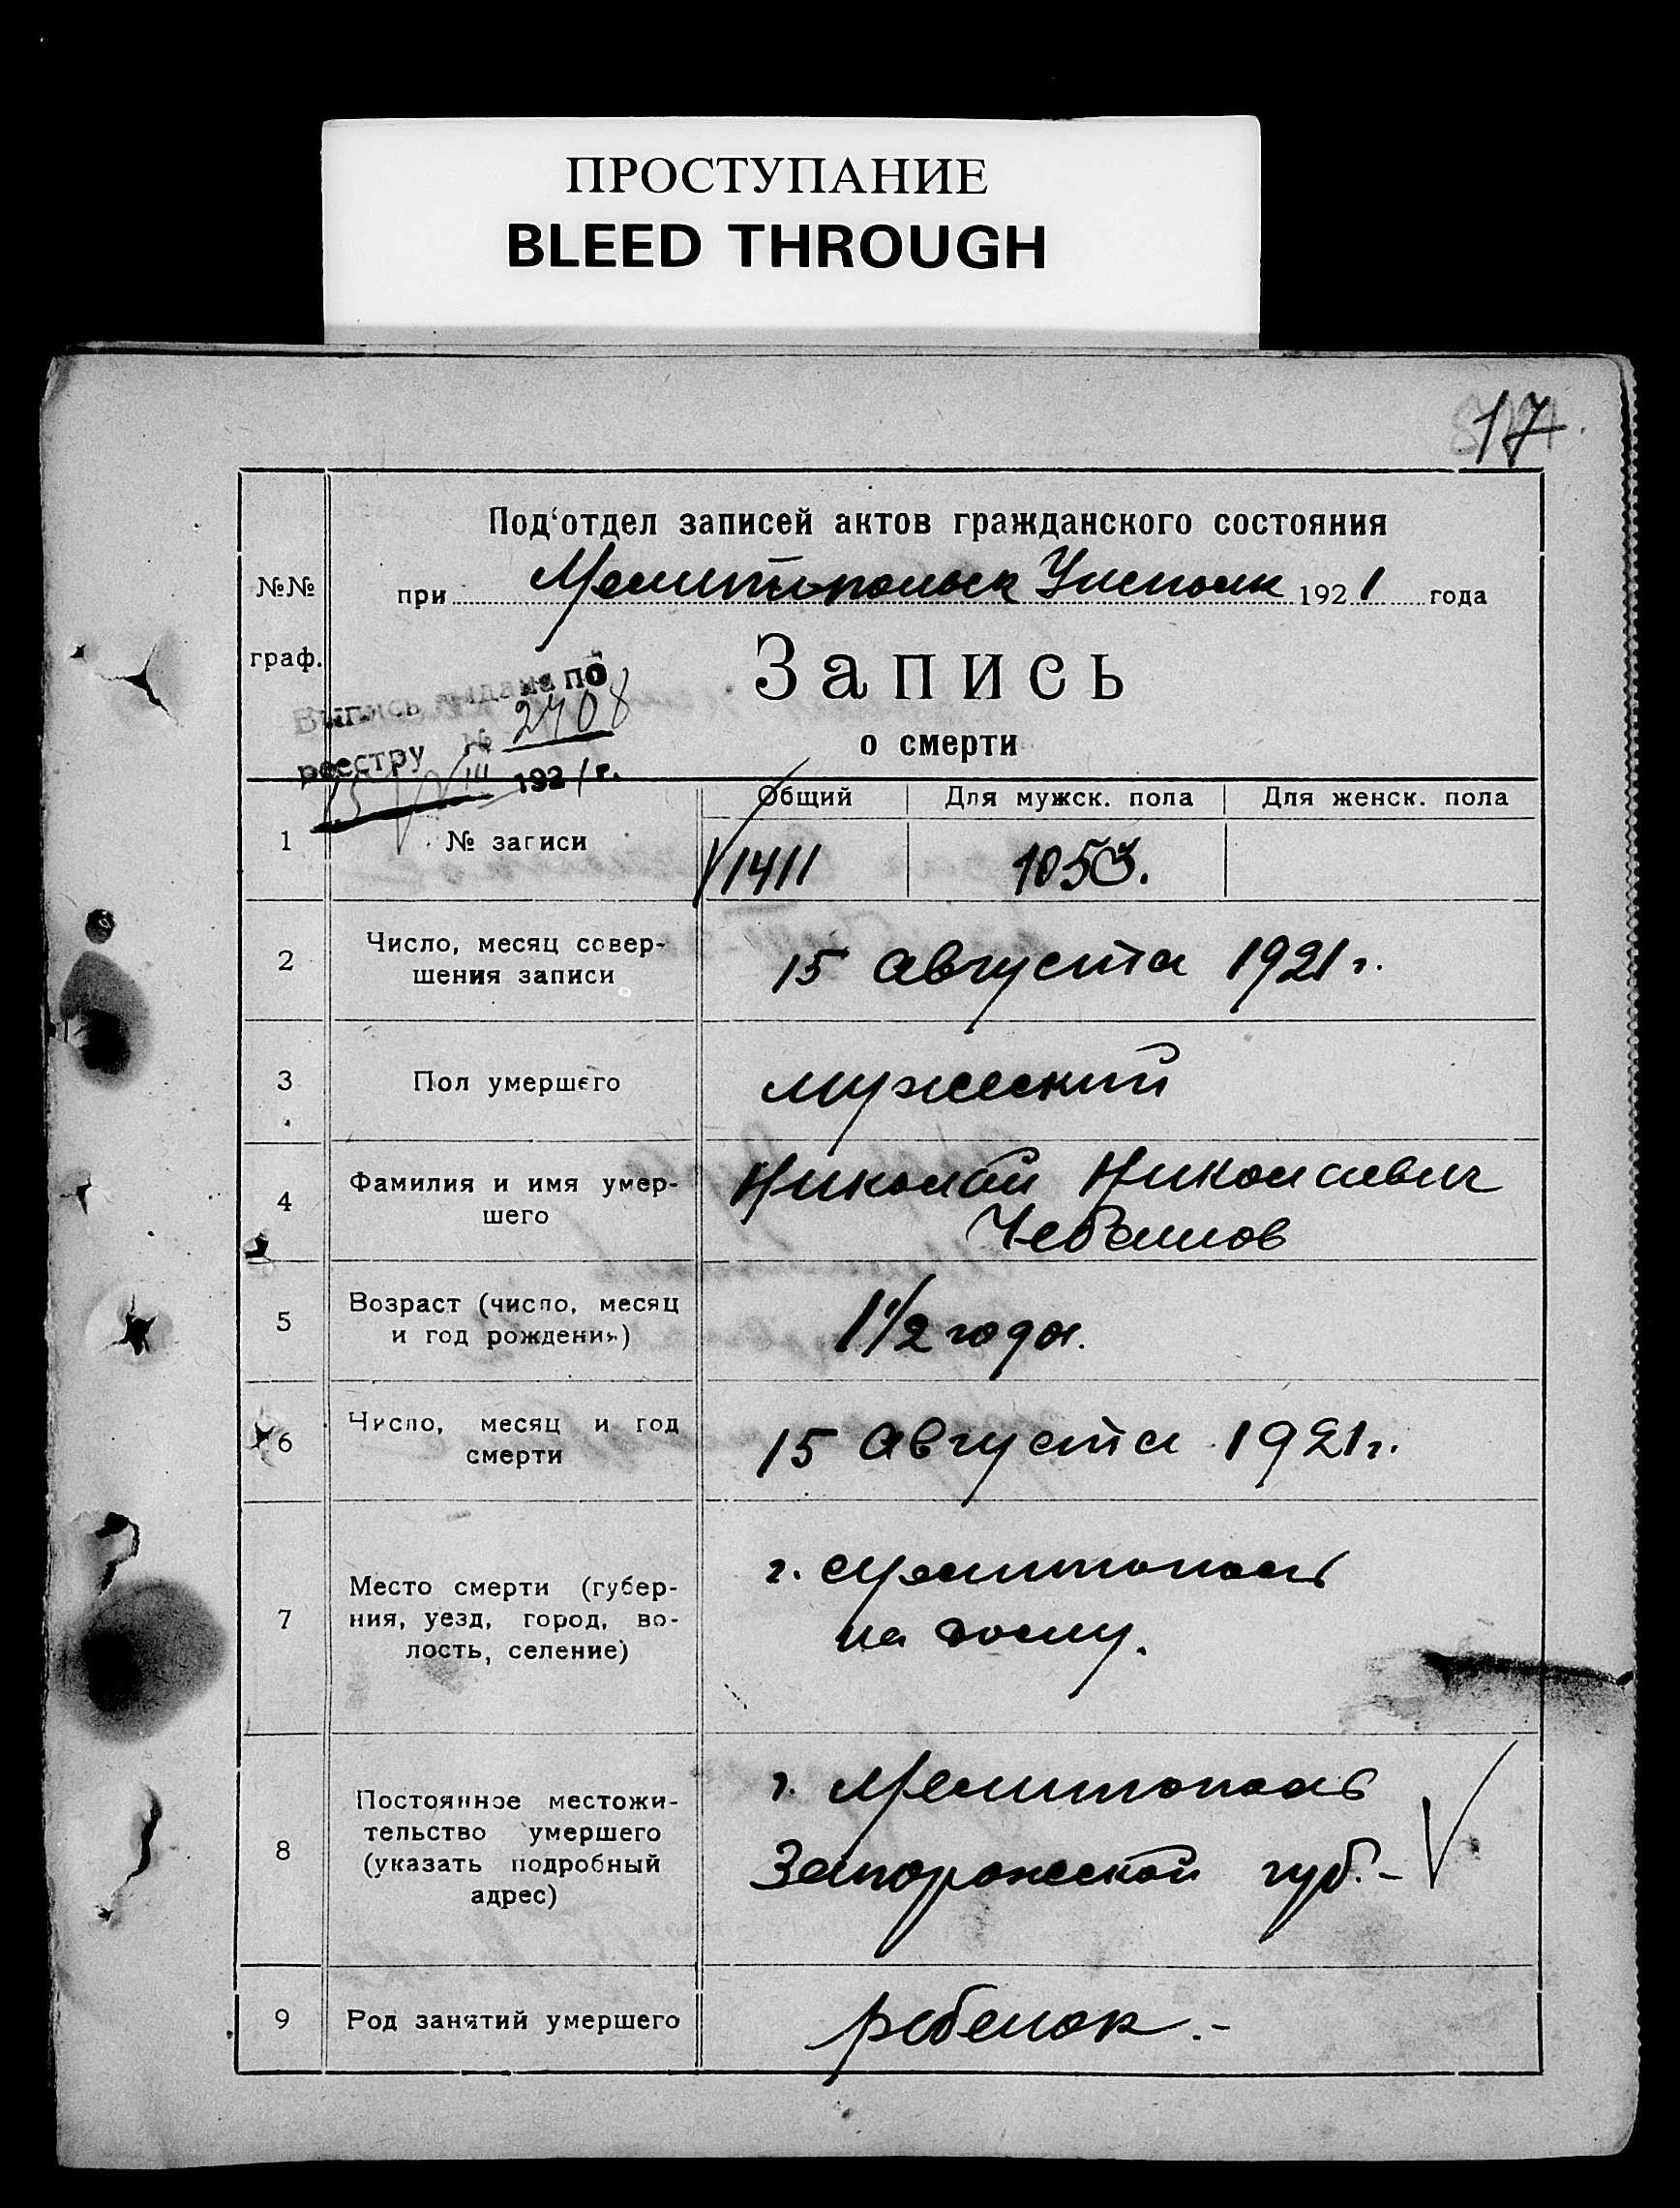 ПРОСТУПАНИЕ
BLEED THROUGH
17
Под‘отдел записей актов гражданского состояния
№№ граф.
при Мелитопольск Уисполк 1921 года
Запись
о смерти
Выпись выдана по
реестру № 2408
15/VIII 1921 г.
Общий Для мужск. пола Для женск. пола
1 № записи 1411 1053.
2 Число, месяц совер-
шения записи 15 августа 1921 г.
3 Пол умершего мужеский
4 Фамилия и имя умер-
шего Николай Николаевич
5 Возраст (число, месяц
и год рождения) 1 1/2 года.
6 Число, месяц и год
смерти 15 августа 1921 г.
7 Место смерти (губер-
ния, уезд, город, во-
лость, селение) г. Мелитополь
на дому.
8 Постоянное местожи-
тельство умершего
(указать подробный
адрес) г. Мелитополь
Запорожской губ.-
9 Род занятий умершего ребенок.-